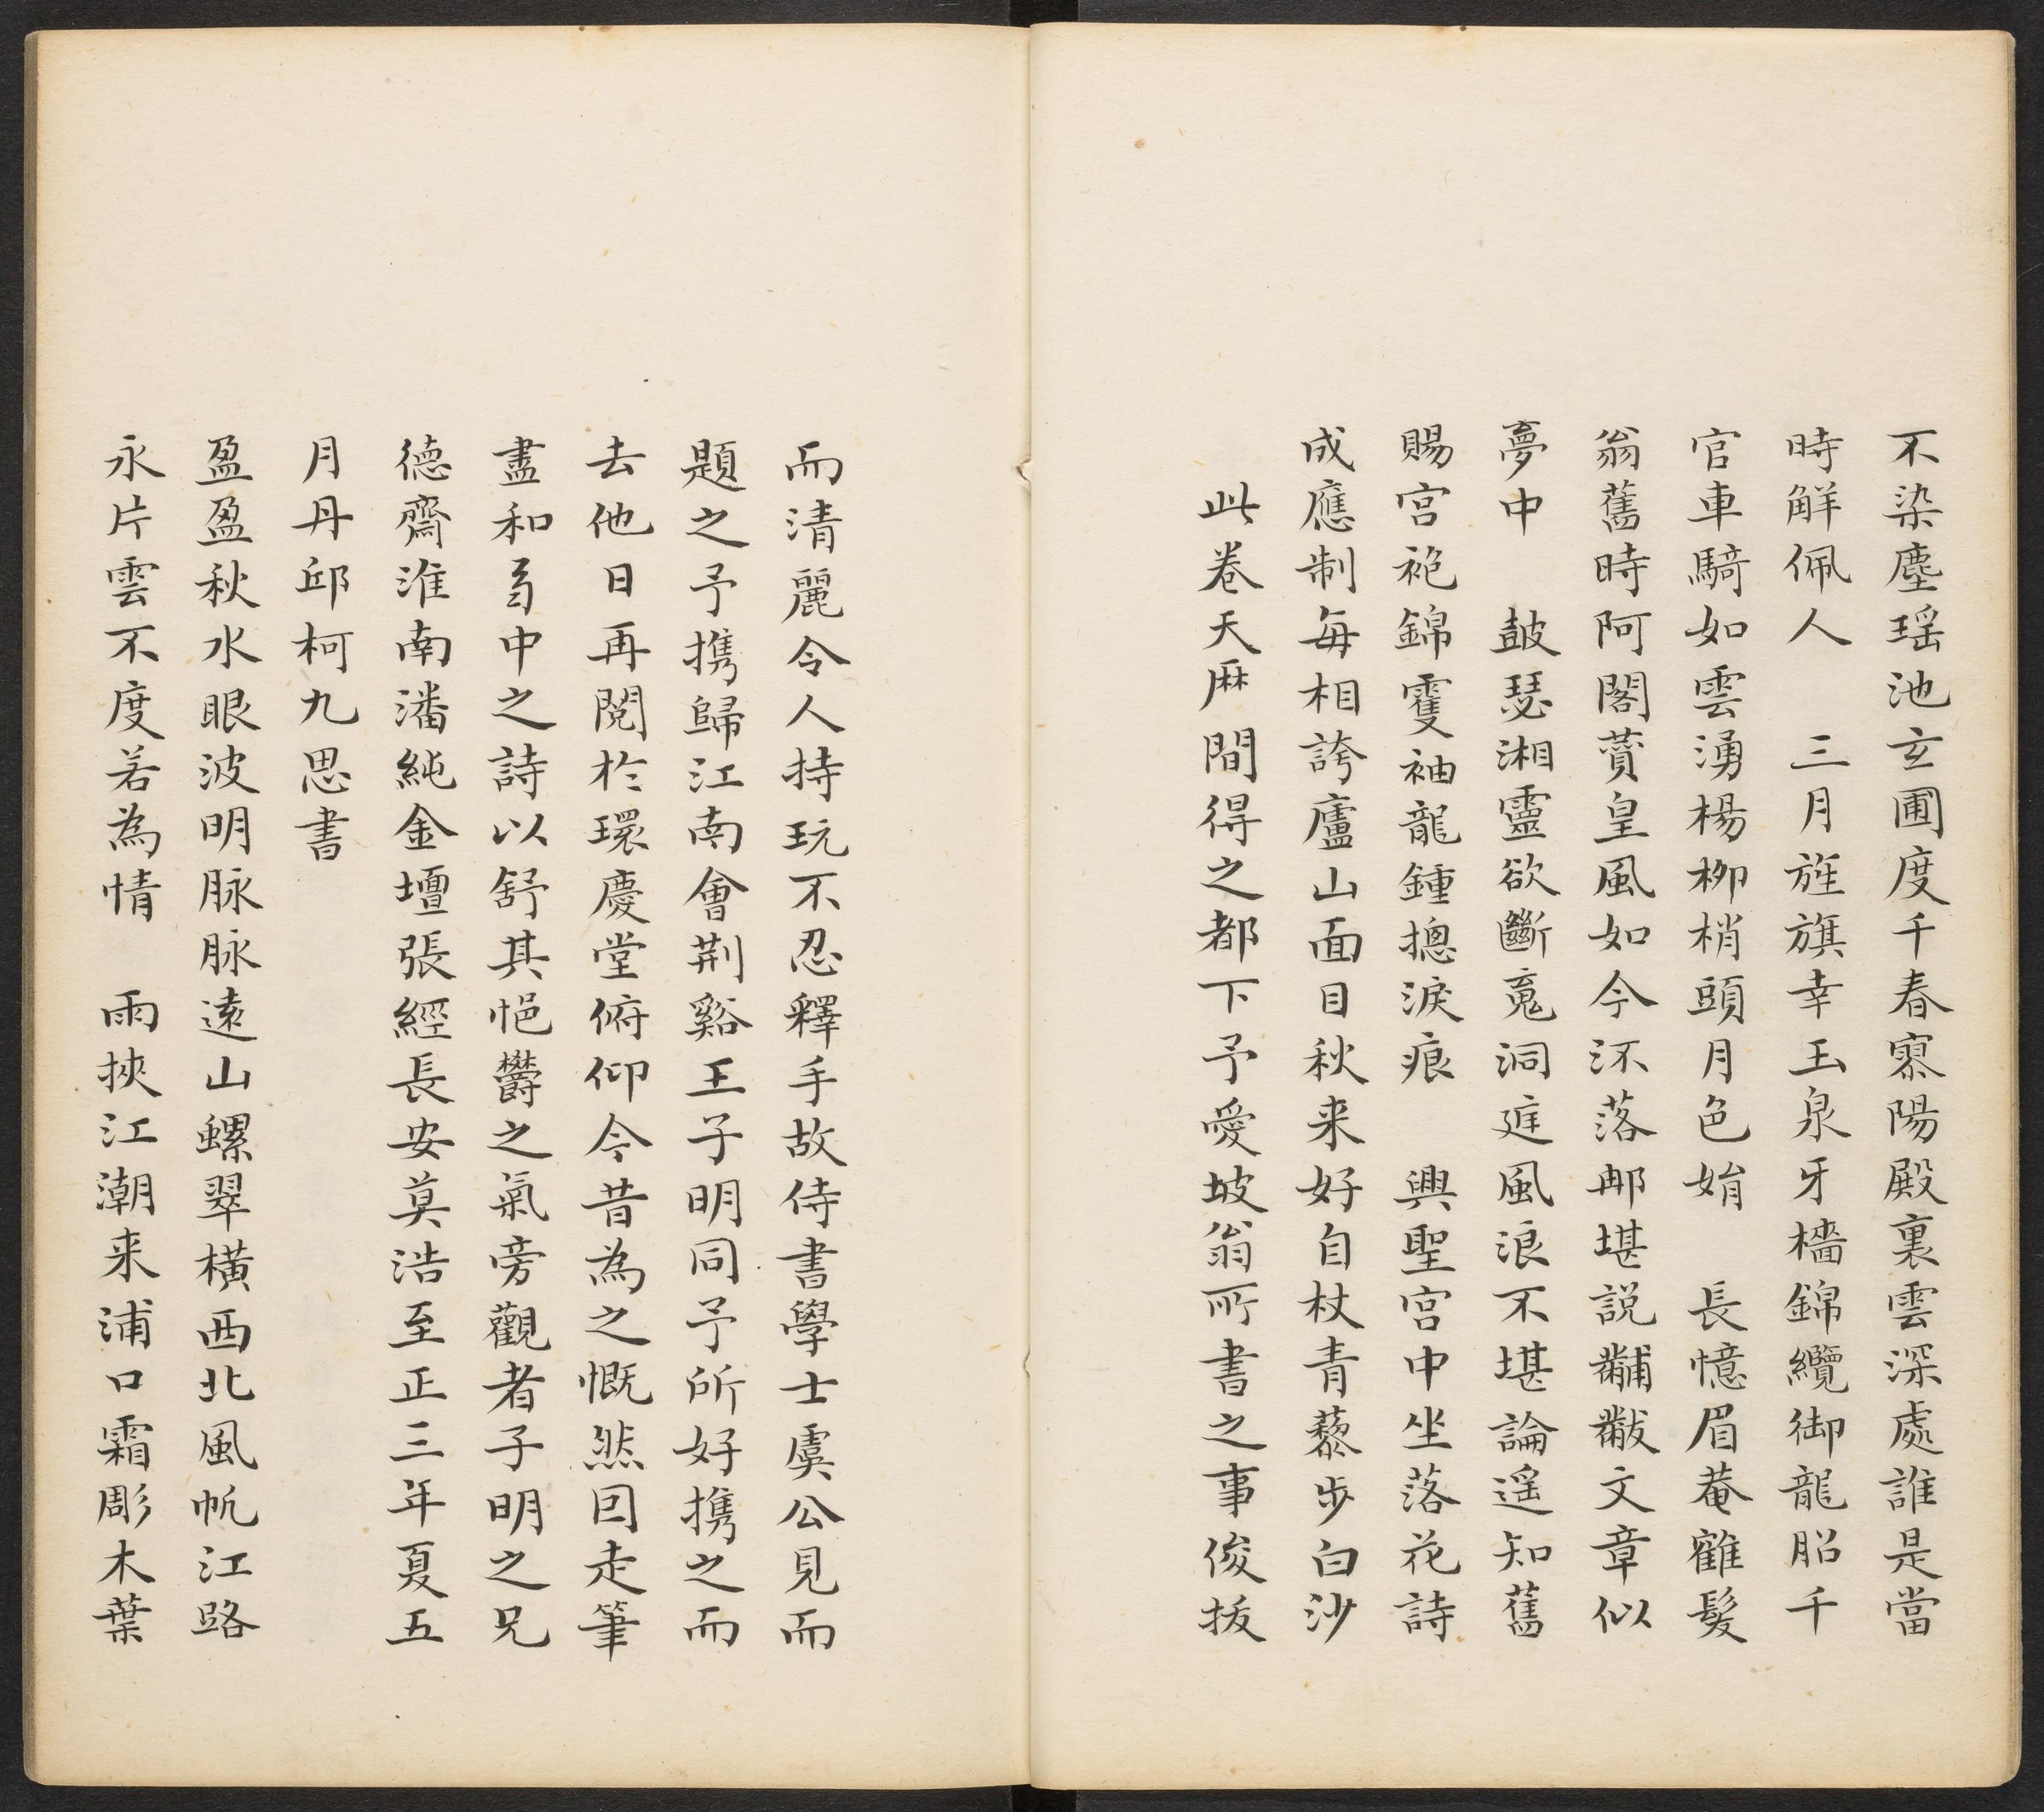 不染塵瑶池玄圃度千春寥陽殿裏雲深處誰是當
時解佩人　三月旌旗幸玉泉牙檣錦纜御龍船千
官車騎如雲湧楊栁梢頭月色娟　長憶眉菴鶴髮
翁舊時阿閣蕢皇風如今淪落邮堪説黼黻文章似
夢中　鼓瑟湘靈欲斷䰟洞庭風浪不堪論遥知舊
賜宫袍錦雙袖龍鍾摠淚痕　興聖宫中坐落花詩
成應制每相誇廬山面目秋来好自杖青藜步白沙
此卷天厤間得之都下予愛坡翁所書之事俊拔
而清麗令人持玩不忍釋手故侍書學士虞公見而
題之予携歸江南會荆谿王子明同予所好携之而
去他日再閲於環慶堂俯仰今昔為之慨然回走筆
盡和弓中之詩以舒其悒欝之氣旁觀者子明之兄
德齋淮南潘純金壇張經長安莫浩至正三年夏五
月丹邱柯九思書
盈盈秋水眼波明脉脉遠山螺翠横西北風帆江路
永片雲不度若為情　雨挾江潮来浦口霜彫木葉